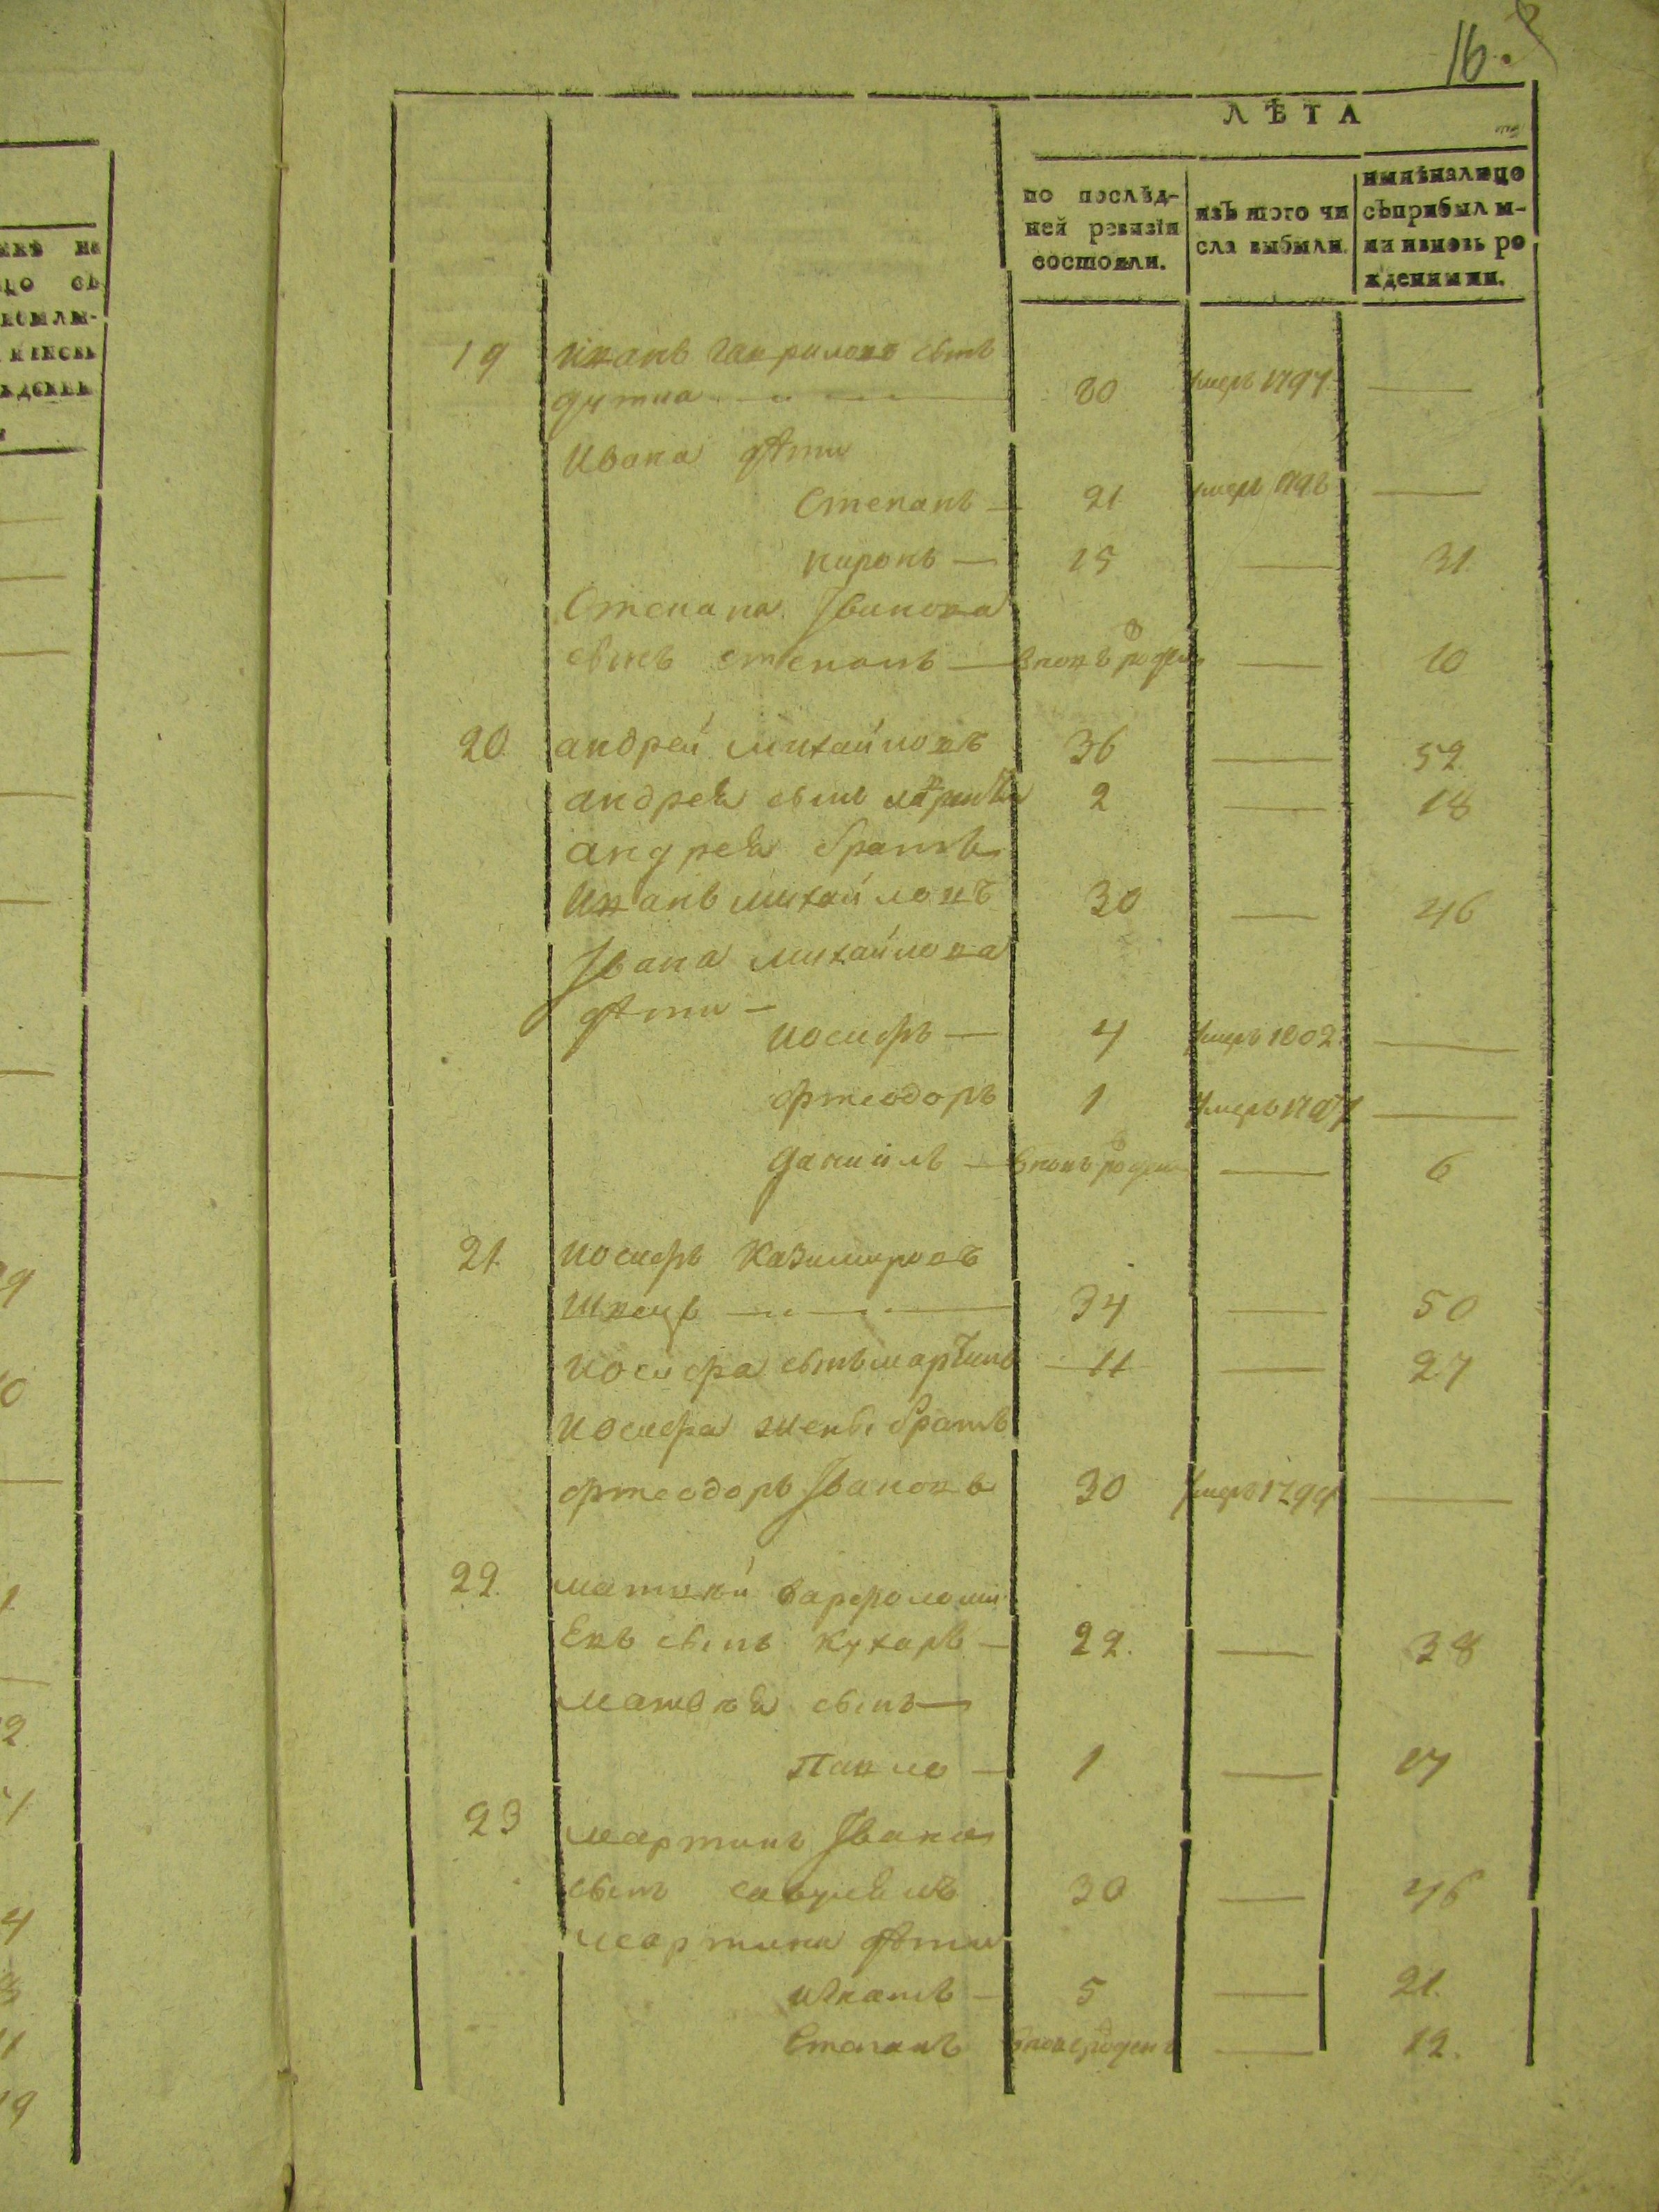 16.
ЛѢТА
по послѣд-
ней ревизіи
состояли.
изъ того чи
сла выбыли.
нынѣ на лицо
съ прибылы-
ми и вновь ро
жденными.
19 Иванъ Гаврилова сынъ
80 умеръ 1797 —
Ивана дѣти
Степанъ — 21 умеръ —
миронъ — 15 — 31
Степана Iванова
сынъ степанъ — вновь рожден — 10
20 андрей михайловъ 36 — 52
андрея сынъ 2 — 18
андрея братъ
Иванъ михайловъ 30 — 46
Iвана михайлова
дѣти —
иосифъ — 4 умеръ 1802 —
фтеодоръ 1 умеръ —
даниилъ — вновь рожден — 6
21 иосифъ Казимировъ
Швецъ — 34 — 50
иосифа сынъ мартинъ — 11 — 27
иосифа жены братъ
фтеодоръ Iвановъ 30 умеръ 1799 —
22 матвѣй варфоломи
Евъ сынъ кухаръ — 22. — 38
матвѣя сынъ —
Павло — 1 — 17
23 мартинъ Iвана
сынъ 30 — 46
мартина дѣти
игнатъ — 5 — 21.
Степанъ вновь рожденъ — 12.